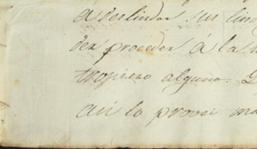 a deslindar sus lin
der proceder á la
tropiezo alguno.
así lo proveí ma